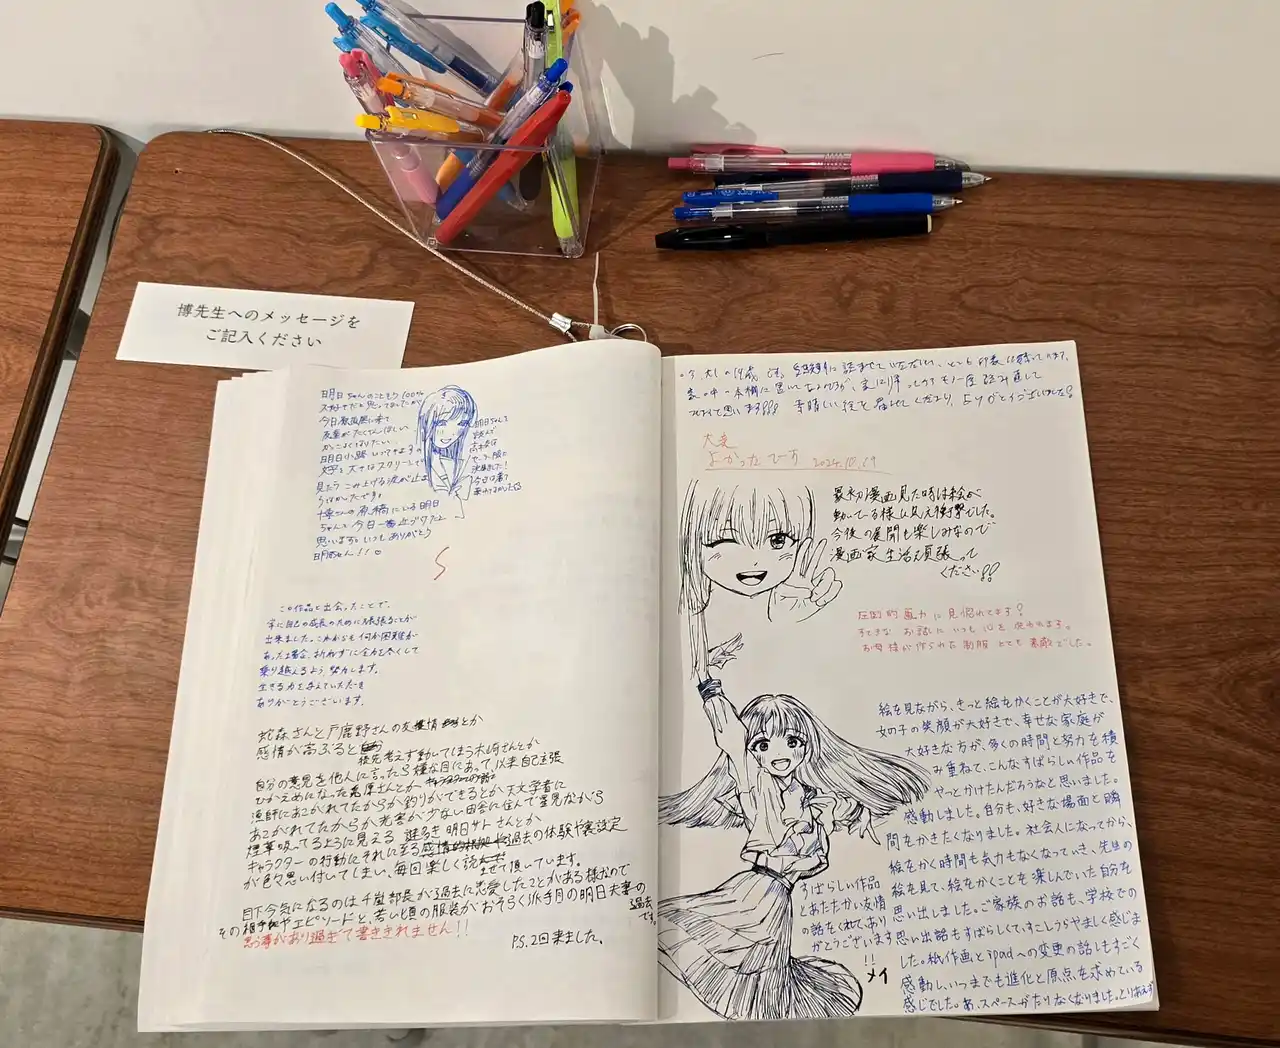 博先生へのメッセージを
ご記入ください
明日ちゃんのこともう100%
大好きだと思ってましたが
今日原画展に来て
友達がたくさんほしい
かっこよくなりたい
明日小路
見たらこみ上げる涙が止ま
らなかったです。
博さんの原稿にいる明日
ちゃんも今日一番近づけたと
思います。いつもありがとう
明日ちゃん!!
明日ちゃんを
読んで
セーラー服に
決めました!
今日は着て
この作品と出会ったことで、
常に自己の成長のために頑張ることが
出来ました。これからも何か困難が
あった場合、折れずに全力を尽くして
乗り越えるよう努力します。
生きる力を与えていただき
ありがとうございます。
蛇森さんと戸鹿野さんの友情とか
感情が高ぶると後先考えず動いてしまう木崎さんとか
自分の意見を他人に言ったら嫌な目にあって、以来自己主張
ひかえめになった
漁師にあこがれてたからか釣りができるとか天文学者に
あこがれてたからか光害が少ない田舎に住んで星見ながら
煙草吸ってるように見える 謎多き明日サトさんとか
キャラクターの行動にそれに至る過去の体験や裏設定
が色々思い付いてしまい、毎回楽しく読ませて頂いています。
目下今気になるのは千嵐部長が過去に恋愛したことがある様なので
その相手やエピソードと、若い頃の服装がおそらく派手目の明日夫妻の過去
です。
思う事があり過ぎて書ききれません!!
P.S. 2回来ました。
素晴しい絵を見せてくださり、ありがとうございました!
大変
よかったでーす 2024.10.29
最初漫画見た時は絵が
動いてる様に見え衝撃でした。
今後の展開も楽しみなので
漫画家生活も頑張って
ください!!
圧倒的画力に見惚れてます!
すてきなお話にいつも心を
お母様が作られた制服とても素敵でした。
絵を見ながら、きっと絵をかくことが大好きで、
女の子の笑顔が大好きで、幸せな家庭が
大好きな方が、多くの時間と努力を積
み重ねて、こんなすばらしい作品を
やっとかけたんだろうなと思いました。
感動しました。自分も、好きな場面と瞬
間をかきたくなりました。社会人になってから、
絵をかく時間も気力もなくなっていき、先生の
絵を見て、絵をかくことを楽しんでいた自分を
思い出しました。ご家族のお話も、学校での
思い出話もすばらしくて、すこしうらやましく感じま
した。紙作画とipadへの変更の話しもすごく
感動し、いつまでも進化と原点を求めている
感じでした。あ、スペースがたりなくなりました。とりあえず
すばらしい作品
とあたたかい友情
の話をくれて、あり
がとうございます
!!
メイ